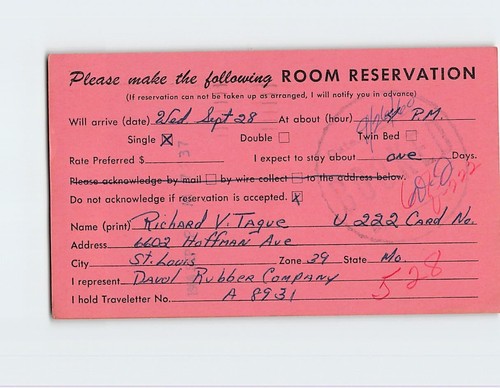 Please make the following ROOM RESERVATION
(If reservation can not be taken up as arranged, I will notify you in advance)
Will arrive (date) Wed Sept 28 At about (hour) 4 P.M.
Single Double Twin Bed
Rate Preferred $ I expect to stay about one Days.
Please acknowledge by mail by wire collect to the address below.
Do not acknowledge if reservation is accepted. X
Name (print) Richard V. Tague U 222 Card No.
Address 6602 Hoffman Ave
City St. Louis Zone 39 State Mo.
I represent Davol Rubber Company
I hold Traveletter No. A 8931
528